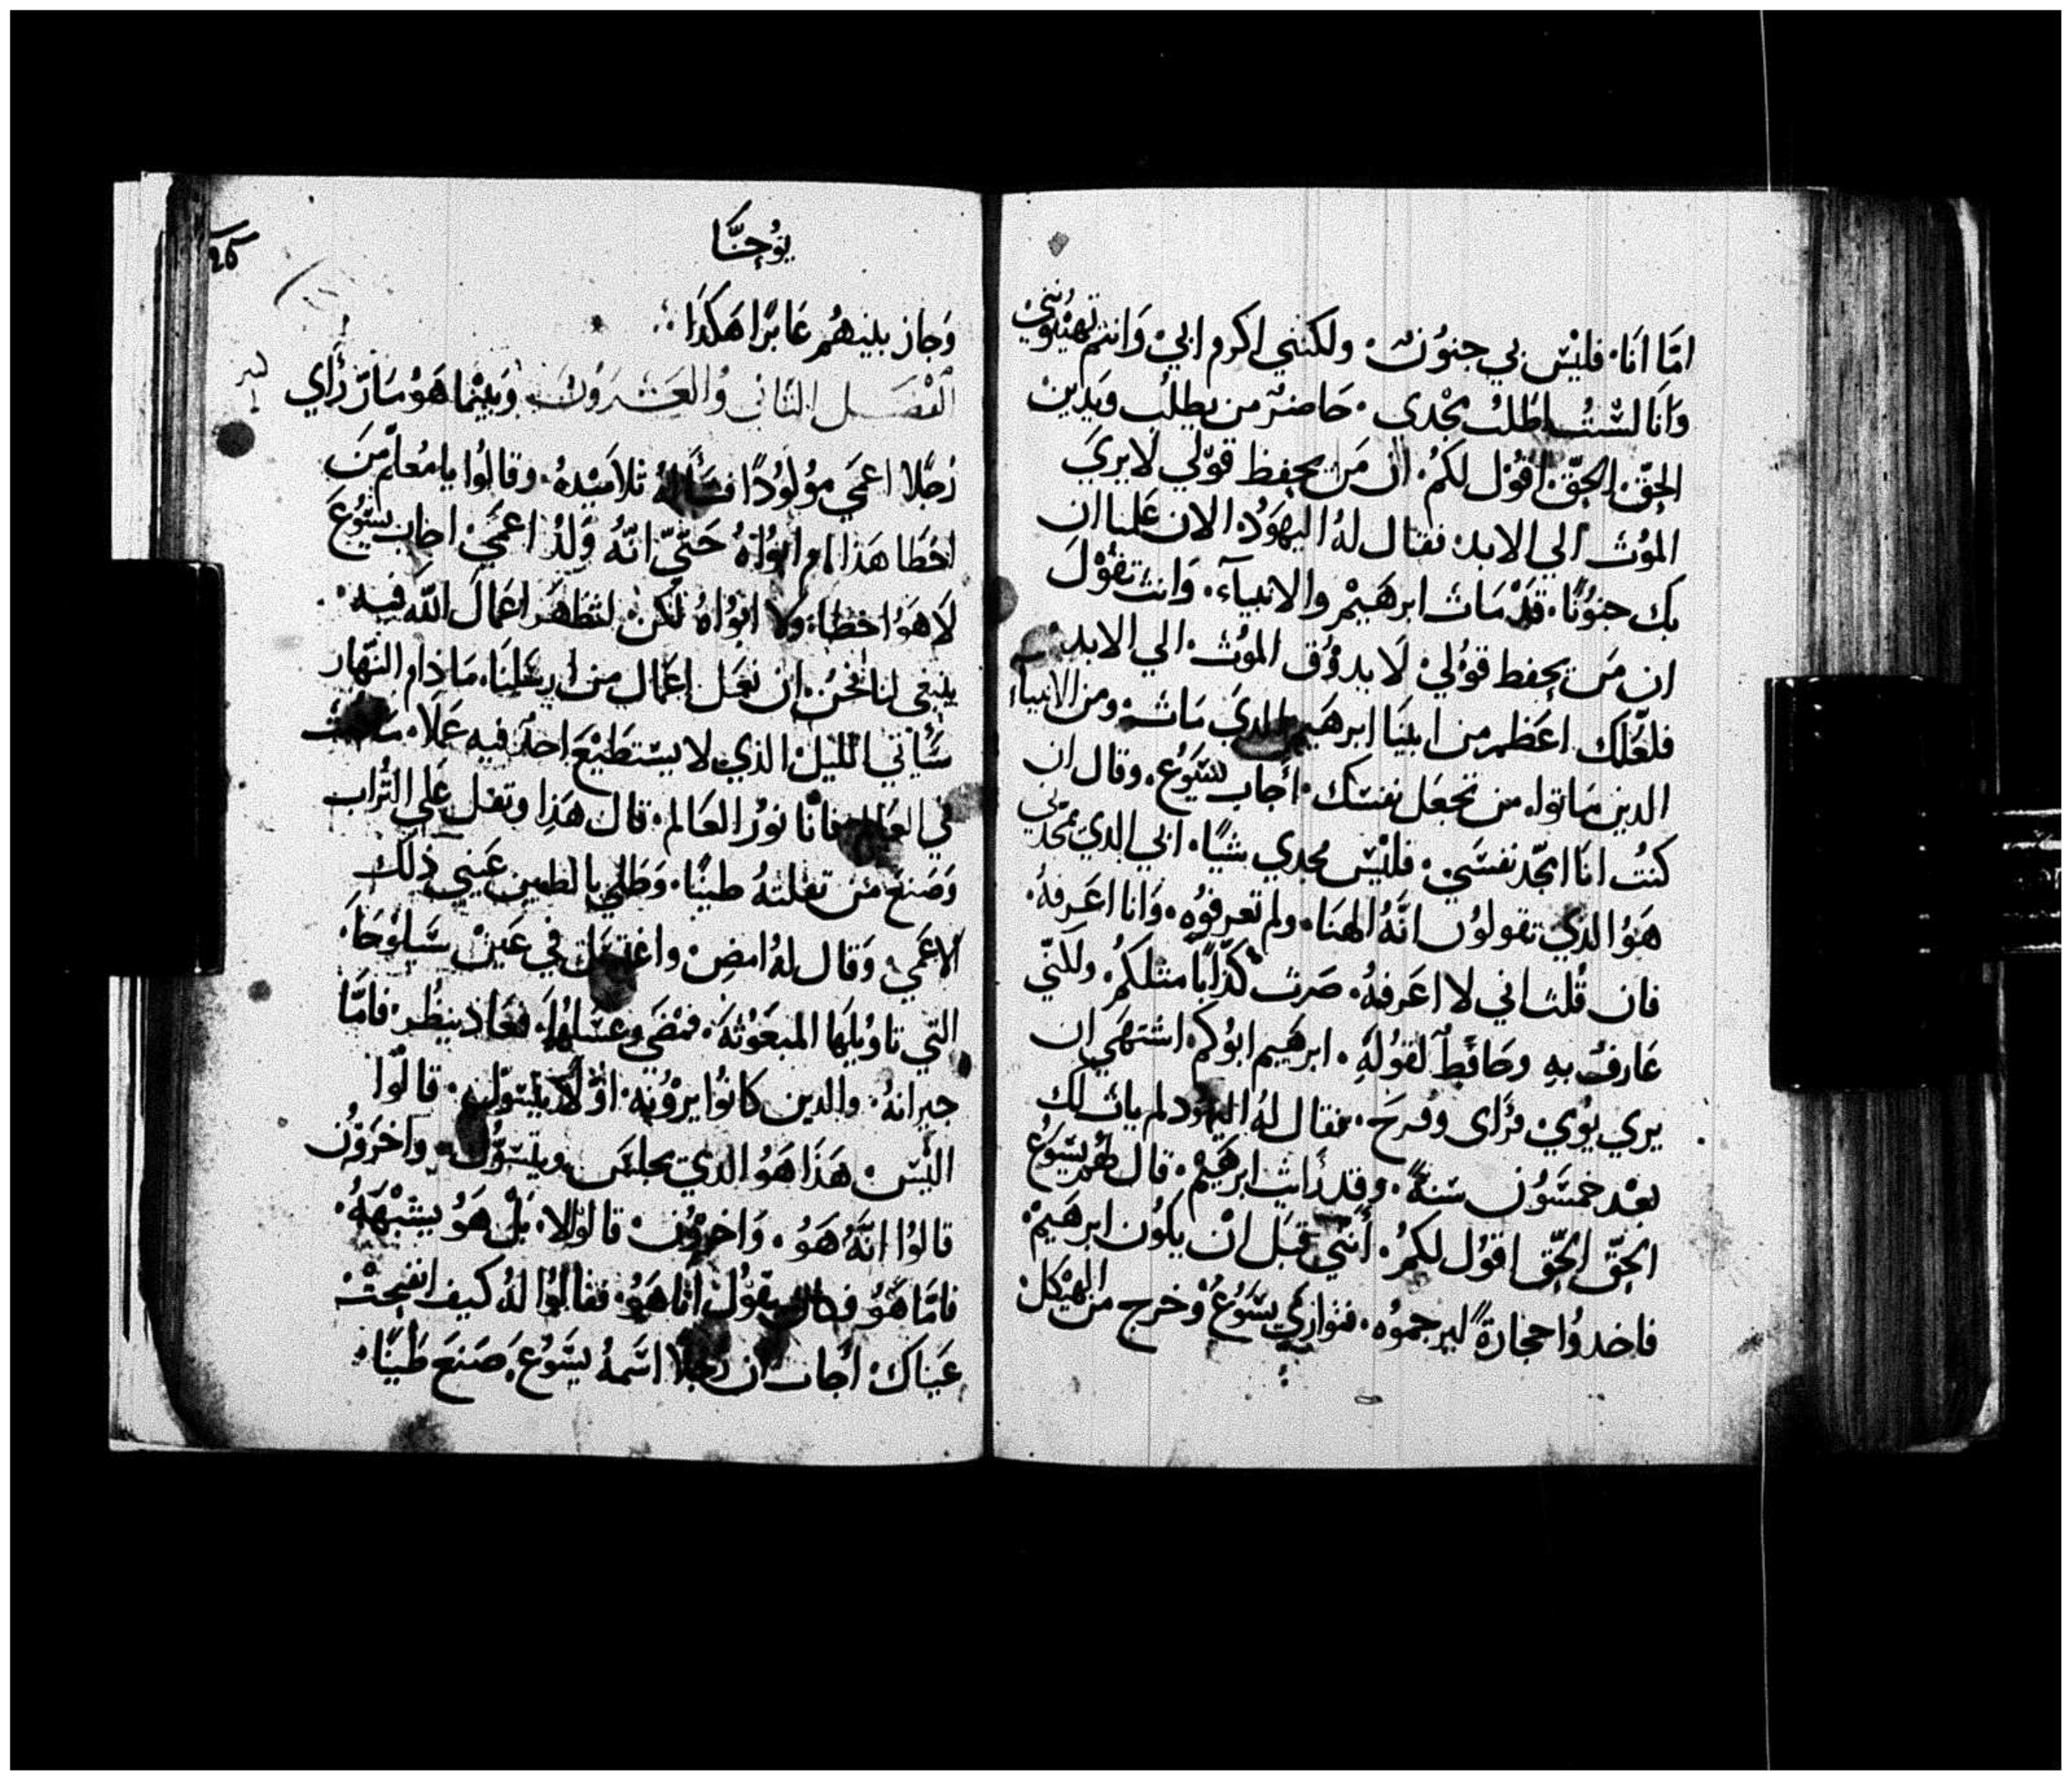 امَّا انَا. فليْس بي جنوُن. ولكنني اكرم ابيْ وَانتم تهينوُنني
وَانَا لسْتُ اطلبُ مجْدي. حَاضر من يطلب ويَدين
الحقّ الحقّ اقوُل لكمُ. ان مَن يحفظ قوْلي لَا يريَ
الموُت الي الابد. فقال لهُ اليهوَدُ الان علمنا ان
بك جنوُنًا. قدْ مَات ابرهيمْ والانبيآء. وَانت تقوْلَ
ان مَن يحفط قوْلي لَا يدوُق الموُت الي الابد.
فلعّلك اعَظم من ابينَا ابرهَيم الدي مَات. ومن الانبياء
الدين مَاتوا. من تجعَل نفسَك. أجَاب يسَوُع. وقال ان
كنتُ انَا امجّد نفسَي. فلَيْس مجدي شيًا. ابي الدي يمجّدني
هَوُ الدي تقولوُن انَّهُ الهنَا. ولم تعرفوُه. وَانا اعَرفهُ.
فان قُلت اني لا اعَرفهُ. صَرت كدّابًا مثلكمُ. ولكنّي
عَارفٌ بهِ وحَافطٌ لقوُلهِ. ابرهَيم ابوُكم. اشتهَي ان
يري يوُمي. فرَأى وفرحَ. فقال لهُ اليهوُد لم يات لك
بعْد خمسَوُن سَنةً. وقد رَايت ابرهَيمْ. قال لهُم يسَوُع
الحقّ الحّق اقوُل لكمُ. أنني قبَل انْ يكوُن ابرهَيمْ
فاخدوُا حجَارةً ليرجموُه. فتوَاري يسَوُعُ وُخرج من الهيْكل
26
يوُحنَّا
وَجَاز بينهُم عَابرًا هَكدَا
الفصَل التاني وُالعَشروُن وَبينْما هَوُ مَارّ رَأي
رَجلًا اعمَي موُلوُدًا فسَأله تلَاميْدهُ. وقالوُا يا مُعلّم مَن
اخطَا هَذا ام ابوُاهُ حَتيّ انّهُ وُلدْ اعمَيْ. اجَاب يسَوُعَ
لَا هَوُ اخطَا. ولا ابوُاهُ لكن لتظهَر اعمَالَ اللَّه فيه.
ينبغي لنا نحنُ. ان نعَمل اعمَال من ارسَلنَا. مَا دَام النهَار
سَيَأتي الليلْ الذي لا يسَتطيْعَ احدٌ فيه عَملًا. مَا دمت
في العَالم فانَا نوُرُ العَالم. قال هَذِا وتفل عَلي التُراب
وَصَنعَ من تفلتهُ طينًا. وَطَلي بالطين عَيني ذلَك
الاعَميْ. وَقال لهُ امضِ واغتسَل في عَين سَيلوُحَا.
التي تاويْلهَا المبعَوُثهَ. فمضَي وغسَلهُا. فعَاد ينظُر. فامَّا
جيرانهُ. والدين كانوُا يروْنه. اوَّلًا يتسَوّل. قالوُا
اليَسَ هَذَا هَوُ الدي يجلسَ ويتسَوّل. واخرَوُن
قالوُا انَّهُ هَوُ. وَاخروُن قالوُا لا. بلْ هَوُ يشبْهَهُ.
فامَّا هَوُ فكان يقوُل انَا هَوُ. فقالوُا لهُ كيف انفتحتْ
عيَنَاك. أجَاب ان رجلًا اسَمهُ يسَوُع. صَنعَ طَينًا.